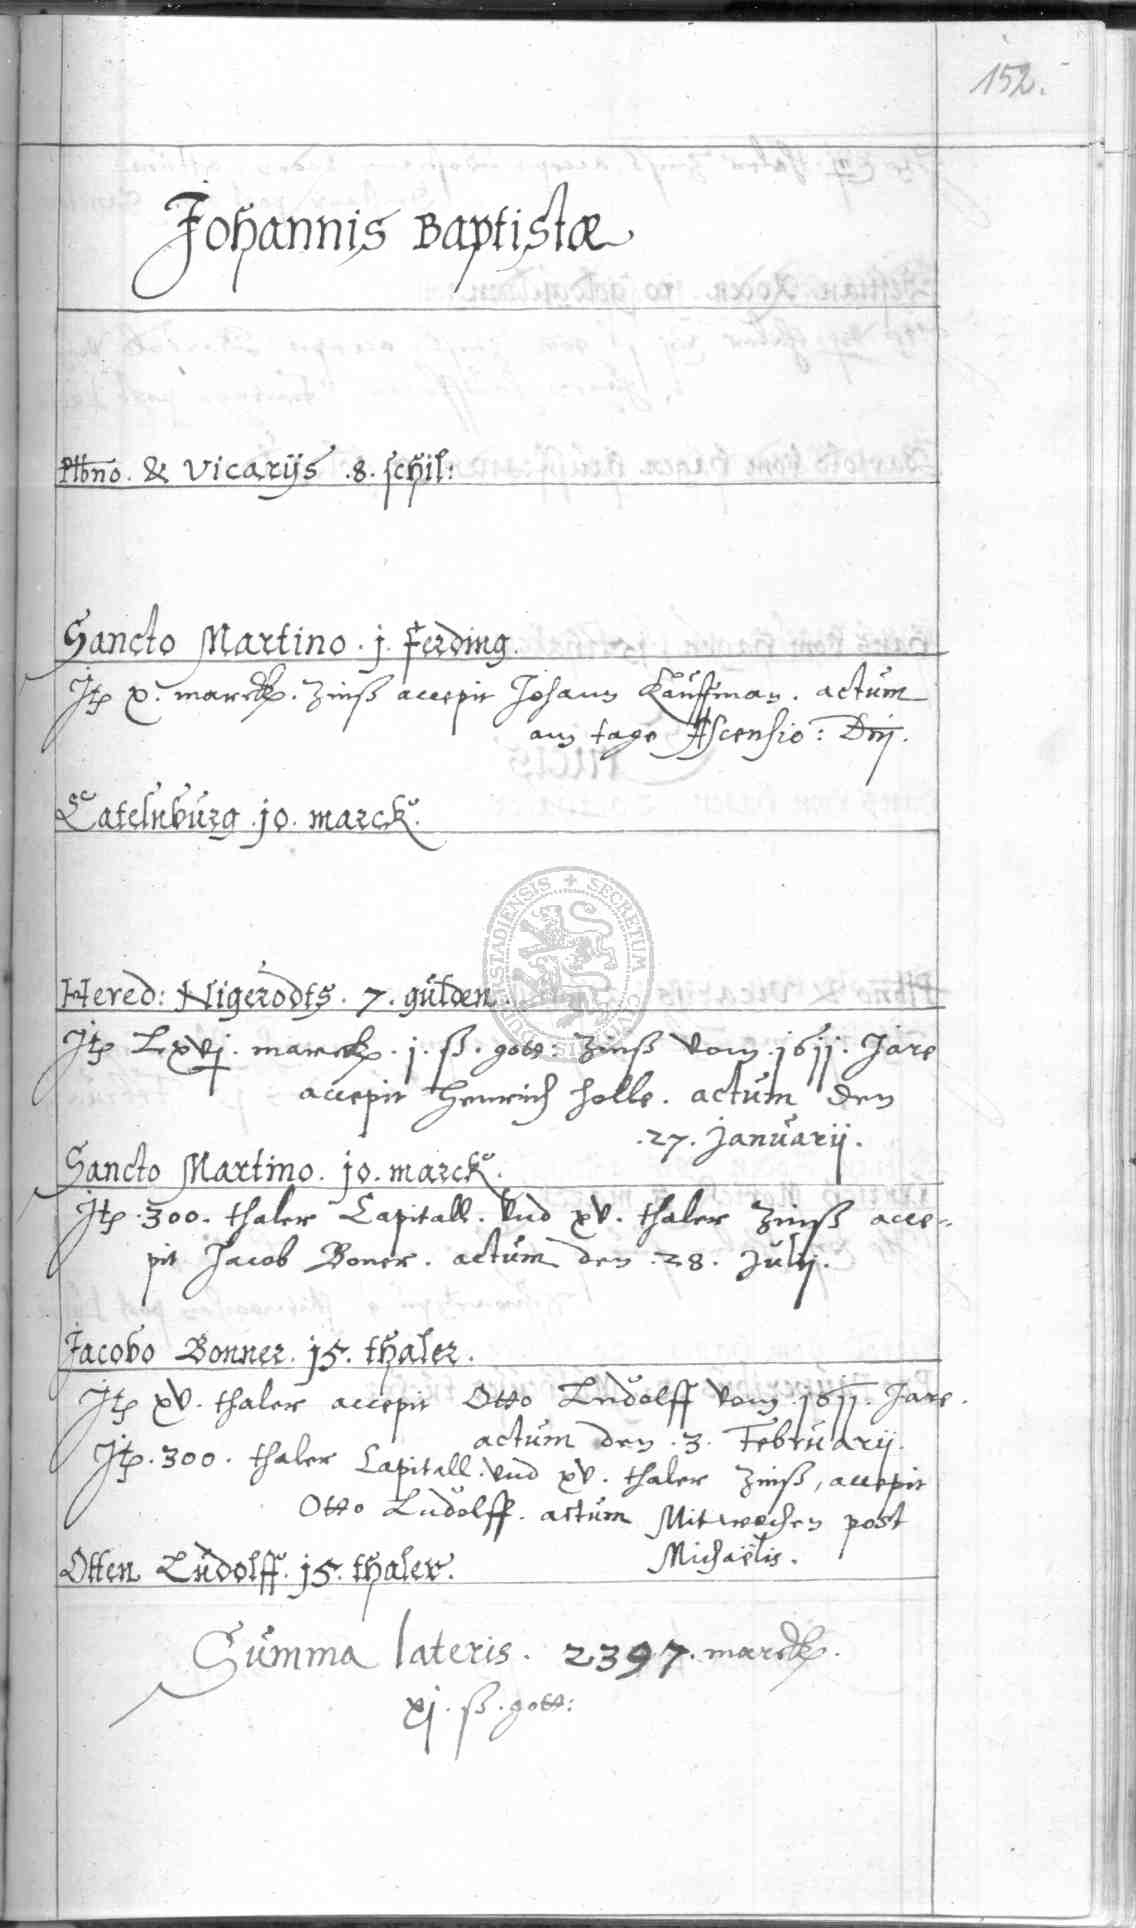 152.
Johannis Baptistæ
Plbno. & vicarijs .8. schil:
Sancto Martino . j. ferding.
Jtem x. marck. Zinß accepit Johan Kauffman. actum
am tage Ascensio: Dnj.
Catelnburg .10. marck.
Hered: Nigerodts. 7. gulden.
Jtem Lxvj. marck. j. ß. gott: Zinß vom .1611. Jare
accepit Henrich Holle. actum den
.27. Januarij.
Sancto Martino. 10. marck.
Jtem .300. thaler Capitall. vnd xv. thaler Zinß acce-
pit Jacob Boner. actum den .28. Julij.
Jacobo Bonner. 15. thaler.
Jtem xv. thaler accepit Otto Ludolff vom .1611. Jare.
actum den .3. Februarij.
Jtem .300. thaler Capitall. vnd xv. thaler Zinß, accepit
Otto Ludolff. actum Mitwochen post
Michaëlis.
Otten Ludolff. 15. thaler.
Summa lateris. 2397. marck.
xj. ß. gott:
SECRETUM